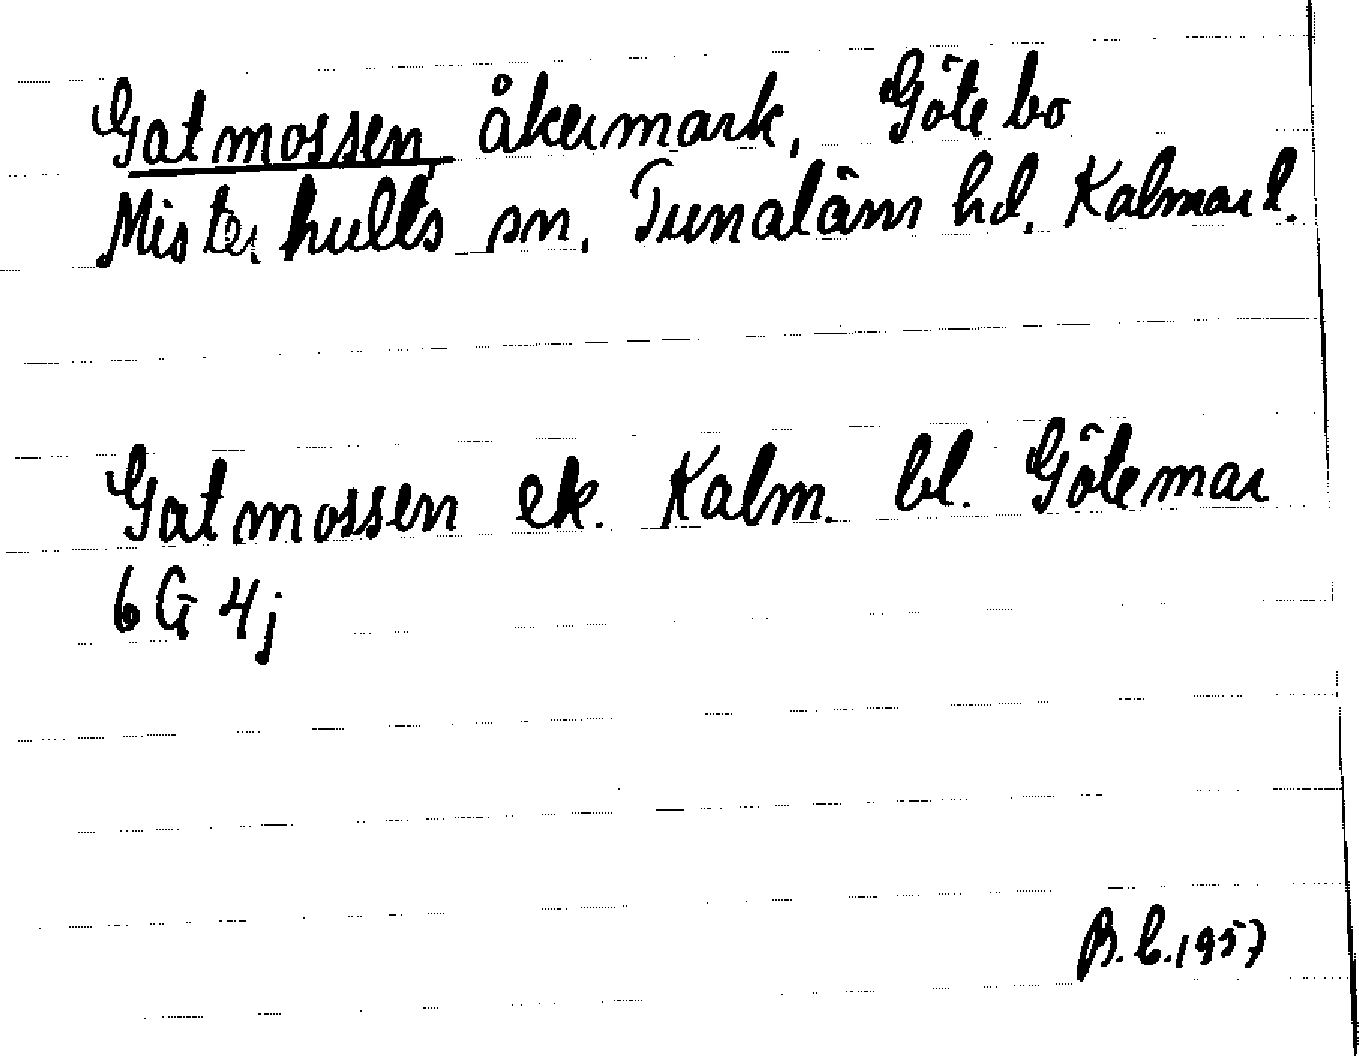 Gatmossen, åkermark, Götebo
Misterhults sn. Tunaläns hd. Kalmar l.
Gatmossen ek. Kalm. bl. Götemar
6G 4j
B.C. 1957